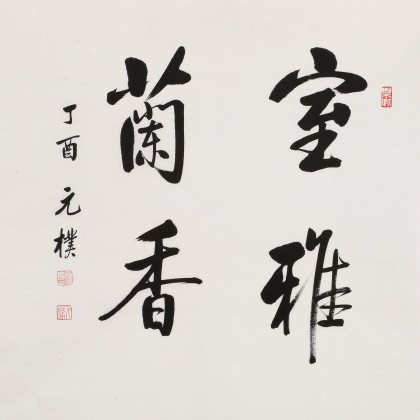 室雅
蘭香
丁酉元樸